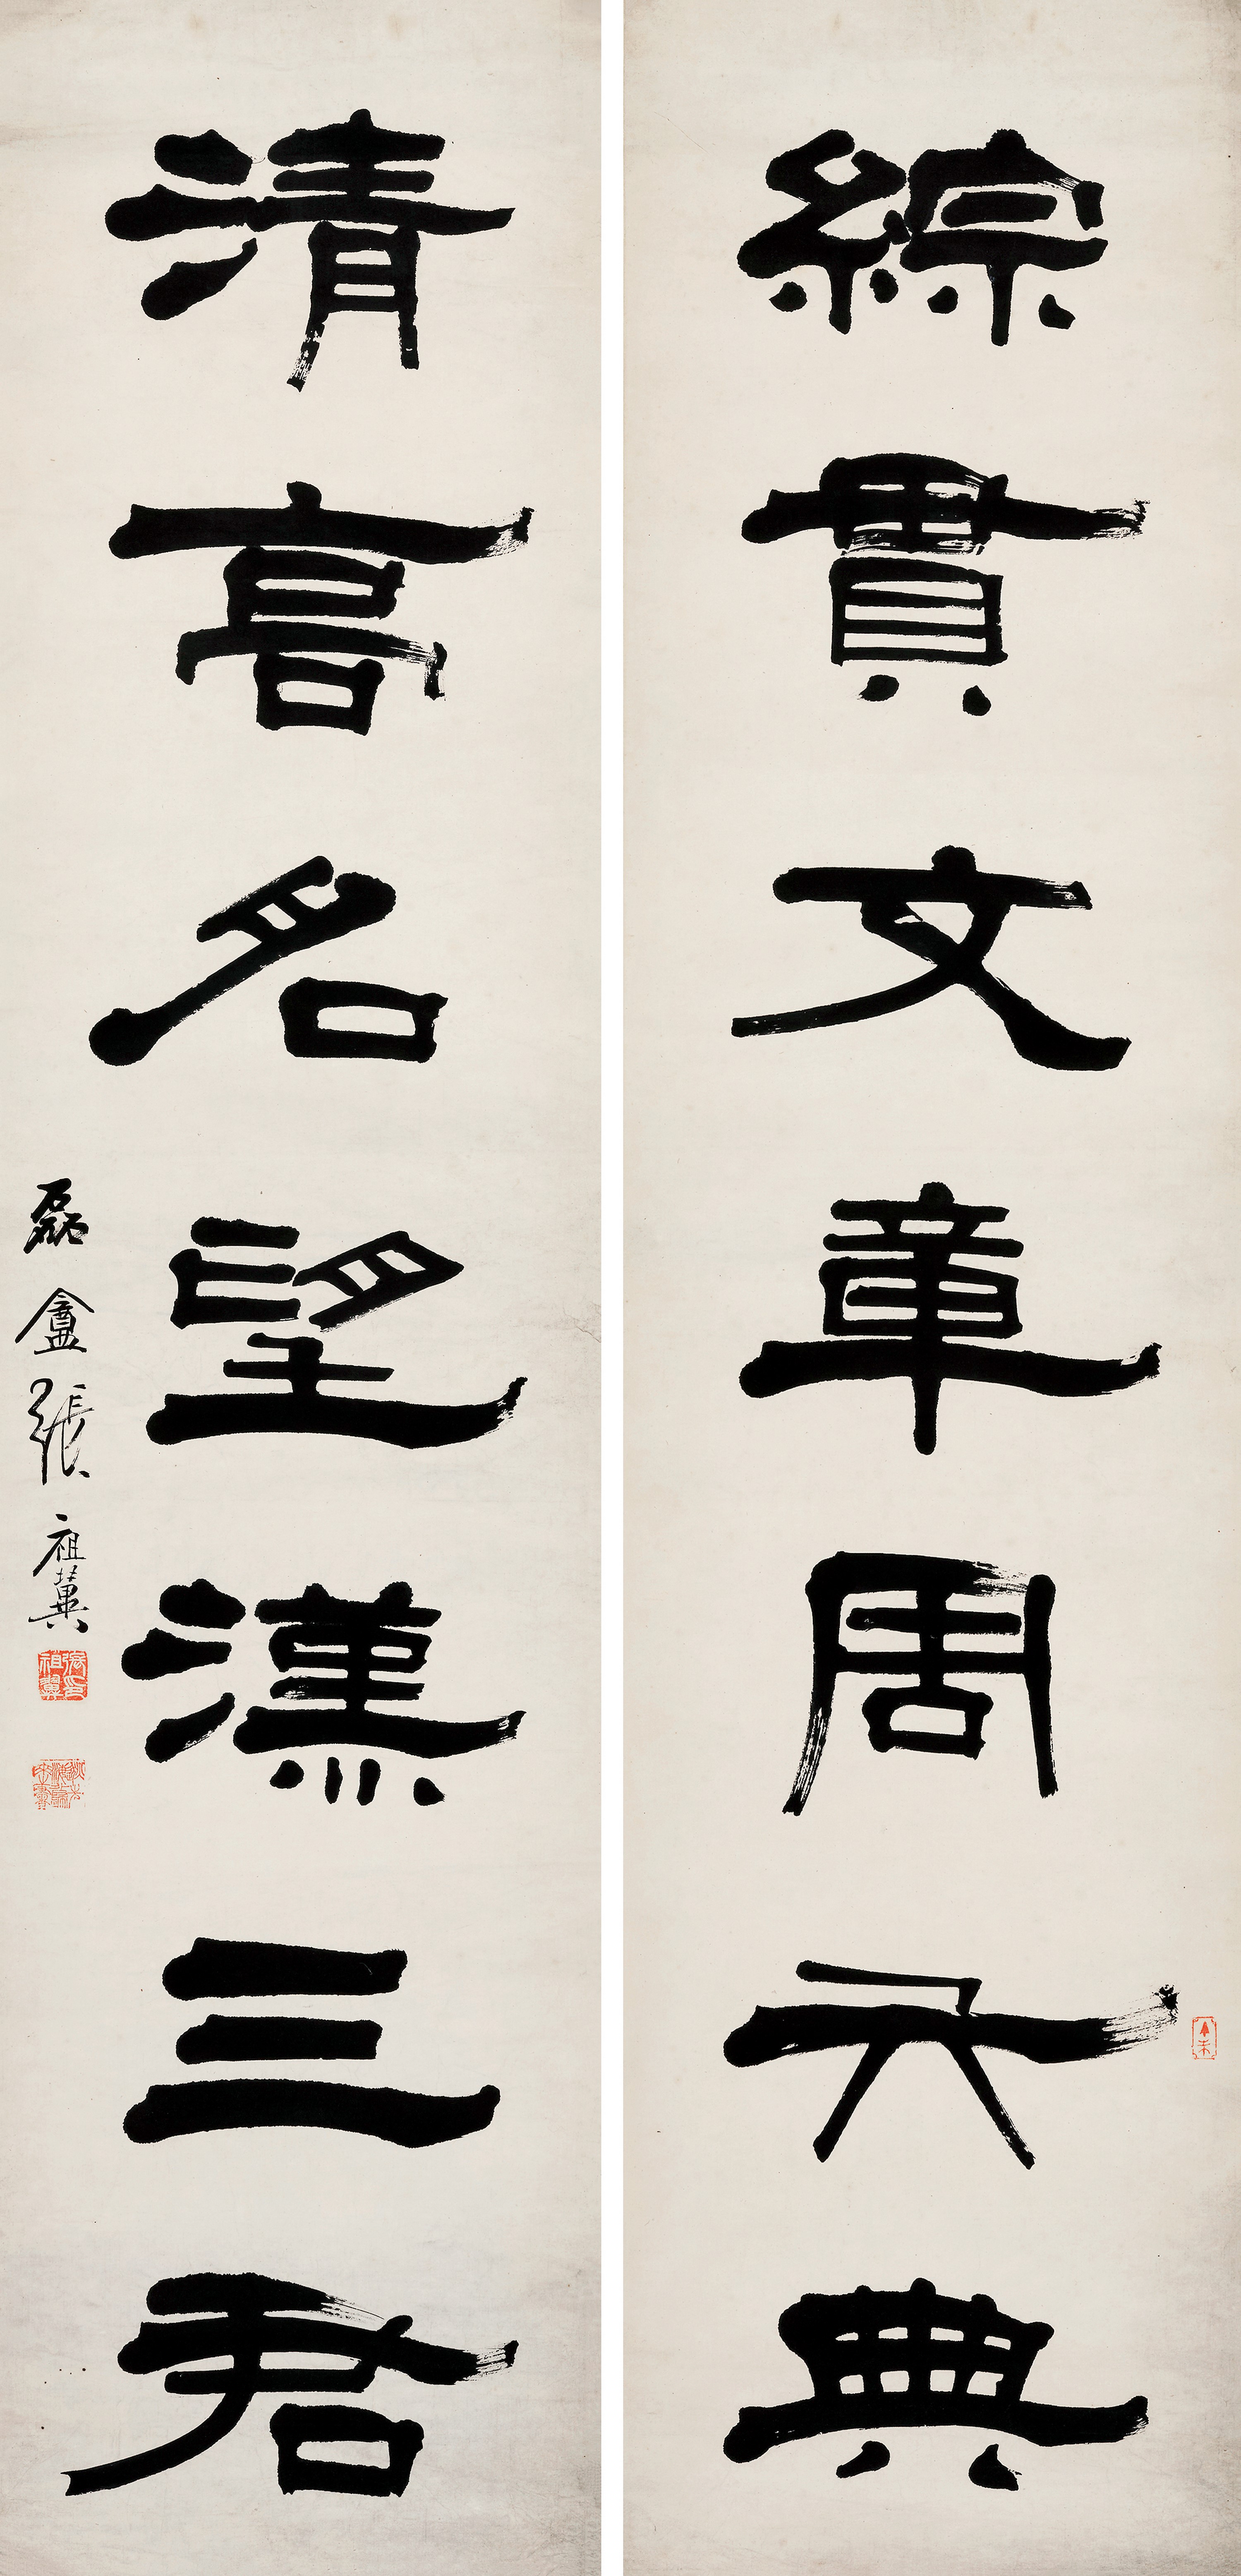 綜貫文章周六典
清高名望漢三君
磊盦張祖翼
張印祖翼